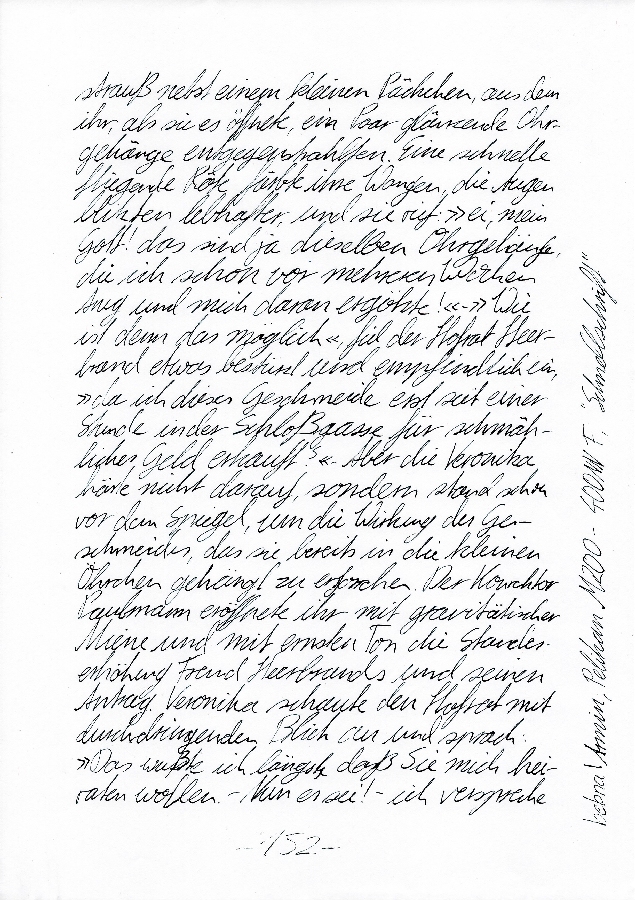 strauß nebst einem kleinen Päckchen, aus dem
ihr, als sie es öffnete, ein Paar glänzende Ohr-
gehänge entgegenstrahlten. Eine schnelle
fliegende Röte färbte ihre Wangen, die Augen
blitzten lebhafter, und sie rief: »ei, mein
Gott! das sind ja dieselben Ohrgehänge,
die ich schon vor mehreren Wochen
trug und mich daran ergötzte!«-»Wie
ist denn das möglich«, fiel der Hofrat Heer-
brand etwas bestürzt und empfindlich ein,
»da ich dieses Geschmeide erst seit einer
Stunde in der Schloßgasse für schmäh-
liches Geld erkauft?«- Aber die Veronika
hörte nicht darauf, sondern stand schon
vor dem Spiegel, um die Wirkung des Ge-
schmeides, das sie bereits in die kleinen
Öhrchen gehängt zu erforschen. Der Konrektor
Paulmann eröffnete ihr mit gravitätischer
Miene und mit ernstem Ton die Standes-
erhöhung Freund Heerbrands und seinen
Antrag. Veronika schaute den Hofrat mit
durchdringenden Blick an und sprach:
»Das wußte ich längst, daß Sie mich hei-
raten wollen.- Nun es sei!- ich verspreche
-152-
Armin, Pelikan M200.- 400NN F, "Schmollschrift"